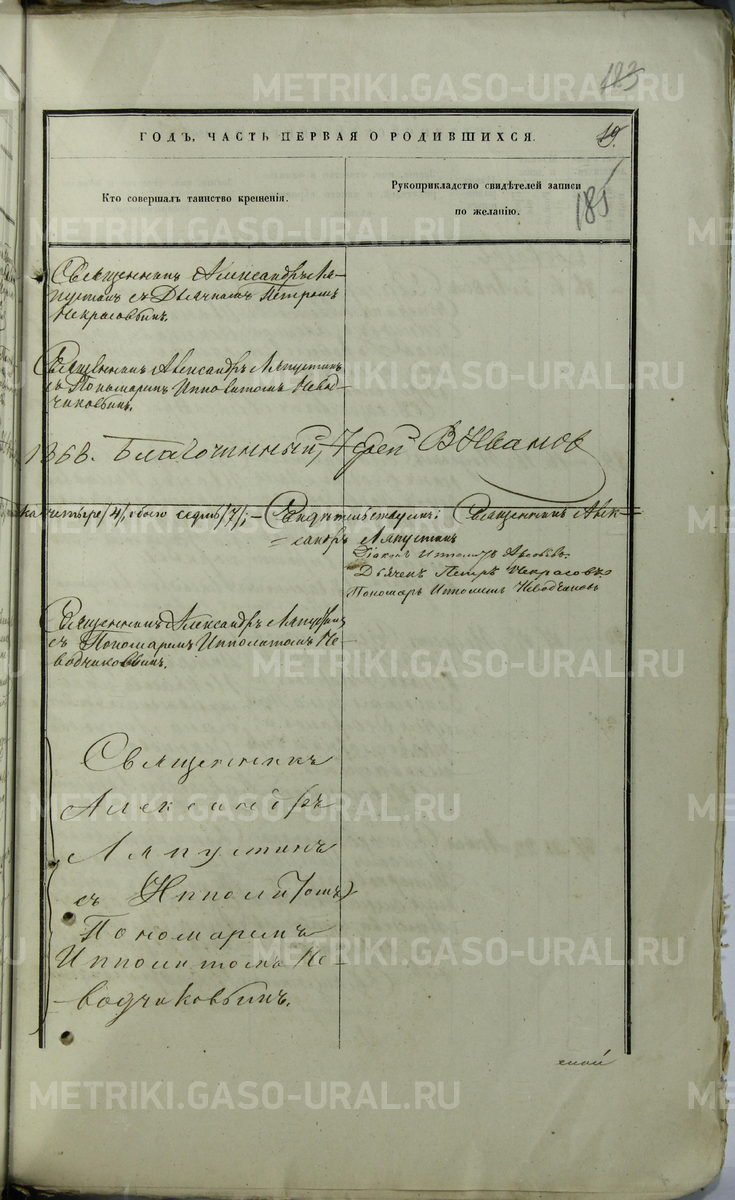 183
ГОДЪ, ЧАСТЬ ПЕРВАЯ О РОДИВШИХСЯ.
19.
185
Кто совершалъ таинство крещенія.
Рукоприкладство свидѣтелей записи
по желанію.
Священникъ Александръ Ля-
пустинъ съ Дьячкомъ Петромъ
Некрасовымъ.
Священникъ Александръ Ляпустинъ
съ Пономаремъ Ипполитомъ Невод-
чиковымъ.
1868. Благочинный, Іерей В Ивановъ
на четыре /4/, обоего седмь /7/; – Свидѣтельствуемъ: Священникъ Алек-
сандръ Ляпустинъ
Діаконъ Ипполитъ
Дьячекъ Петръ Некрасовъ
Пономарь Ипполитъ Неводчиковъ
Священникъ Александръ Ляпустинъ
съ Пономаремъ Ипполитомъ Не-
водчиковымъ.
Священникъ
Александръ
Ляпустинъ
съ (Ипполитомъ)
Пономаремъ
Ипполитомъ Не-
водчиковымъ.
METRIKI.GASO-URAL.RU